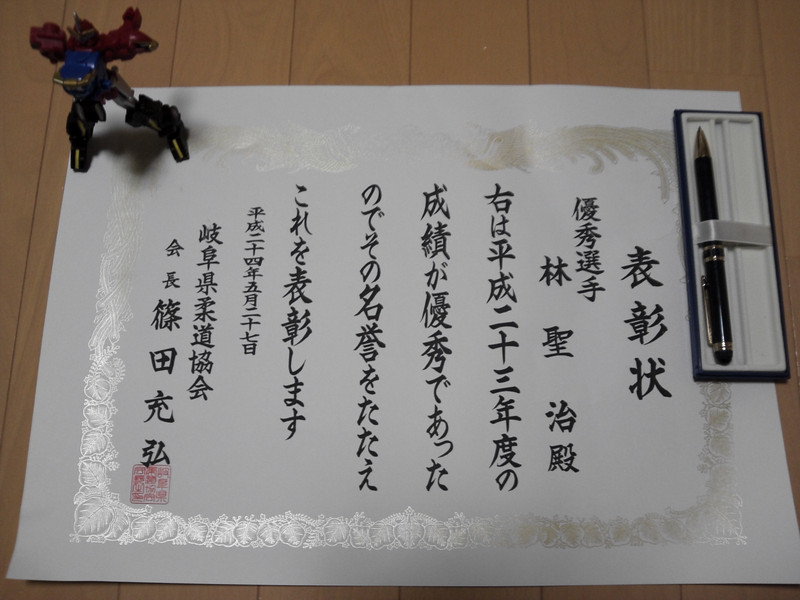 表彰状
優秀選手
林聖治殿
右は平成二十三年度の
成績が優秀であった
のでその名誉をたたえ
これを表彰します
平成二十四年五月二十七日
岐阜県柔道協会
会長 篠田充弘